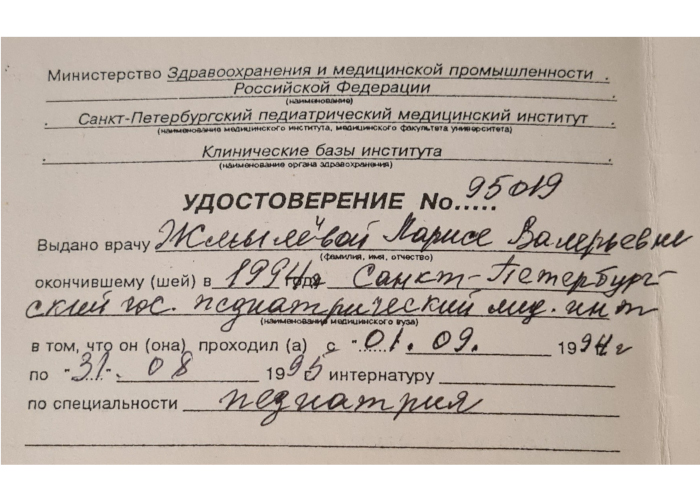 Министерство Здравоохранения и медицинской промышленности
Российской Федерации
(наименование)
Санкт-Петербургский педиатрический медицинский институт
(наименование медицинского института, медицинского факультета университета)
Клинические базы института
(наименование органа здравоохранения)
УДОСТОВЕРЕНИЕ No..... 95019
Выдано врачу Жмылёвой Ларисе Валерьевне
(фамилия, имя, отчество)
окончившему (шей) в 1994 году Санкт-Петербург-
ский гос. педиатрический мед. ин-т
(наименование медицинского вуза)
в том, что он (она) проходил (а) с "01. 09. 1994 г
по "31". 08 1995 интернатуру
по специальности педиатрия